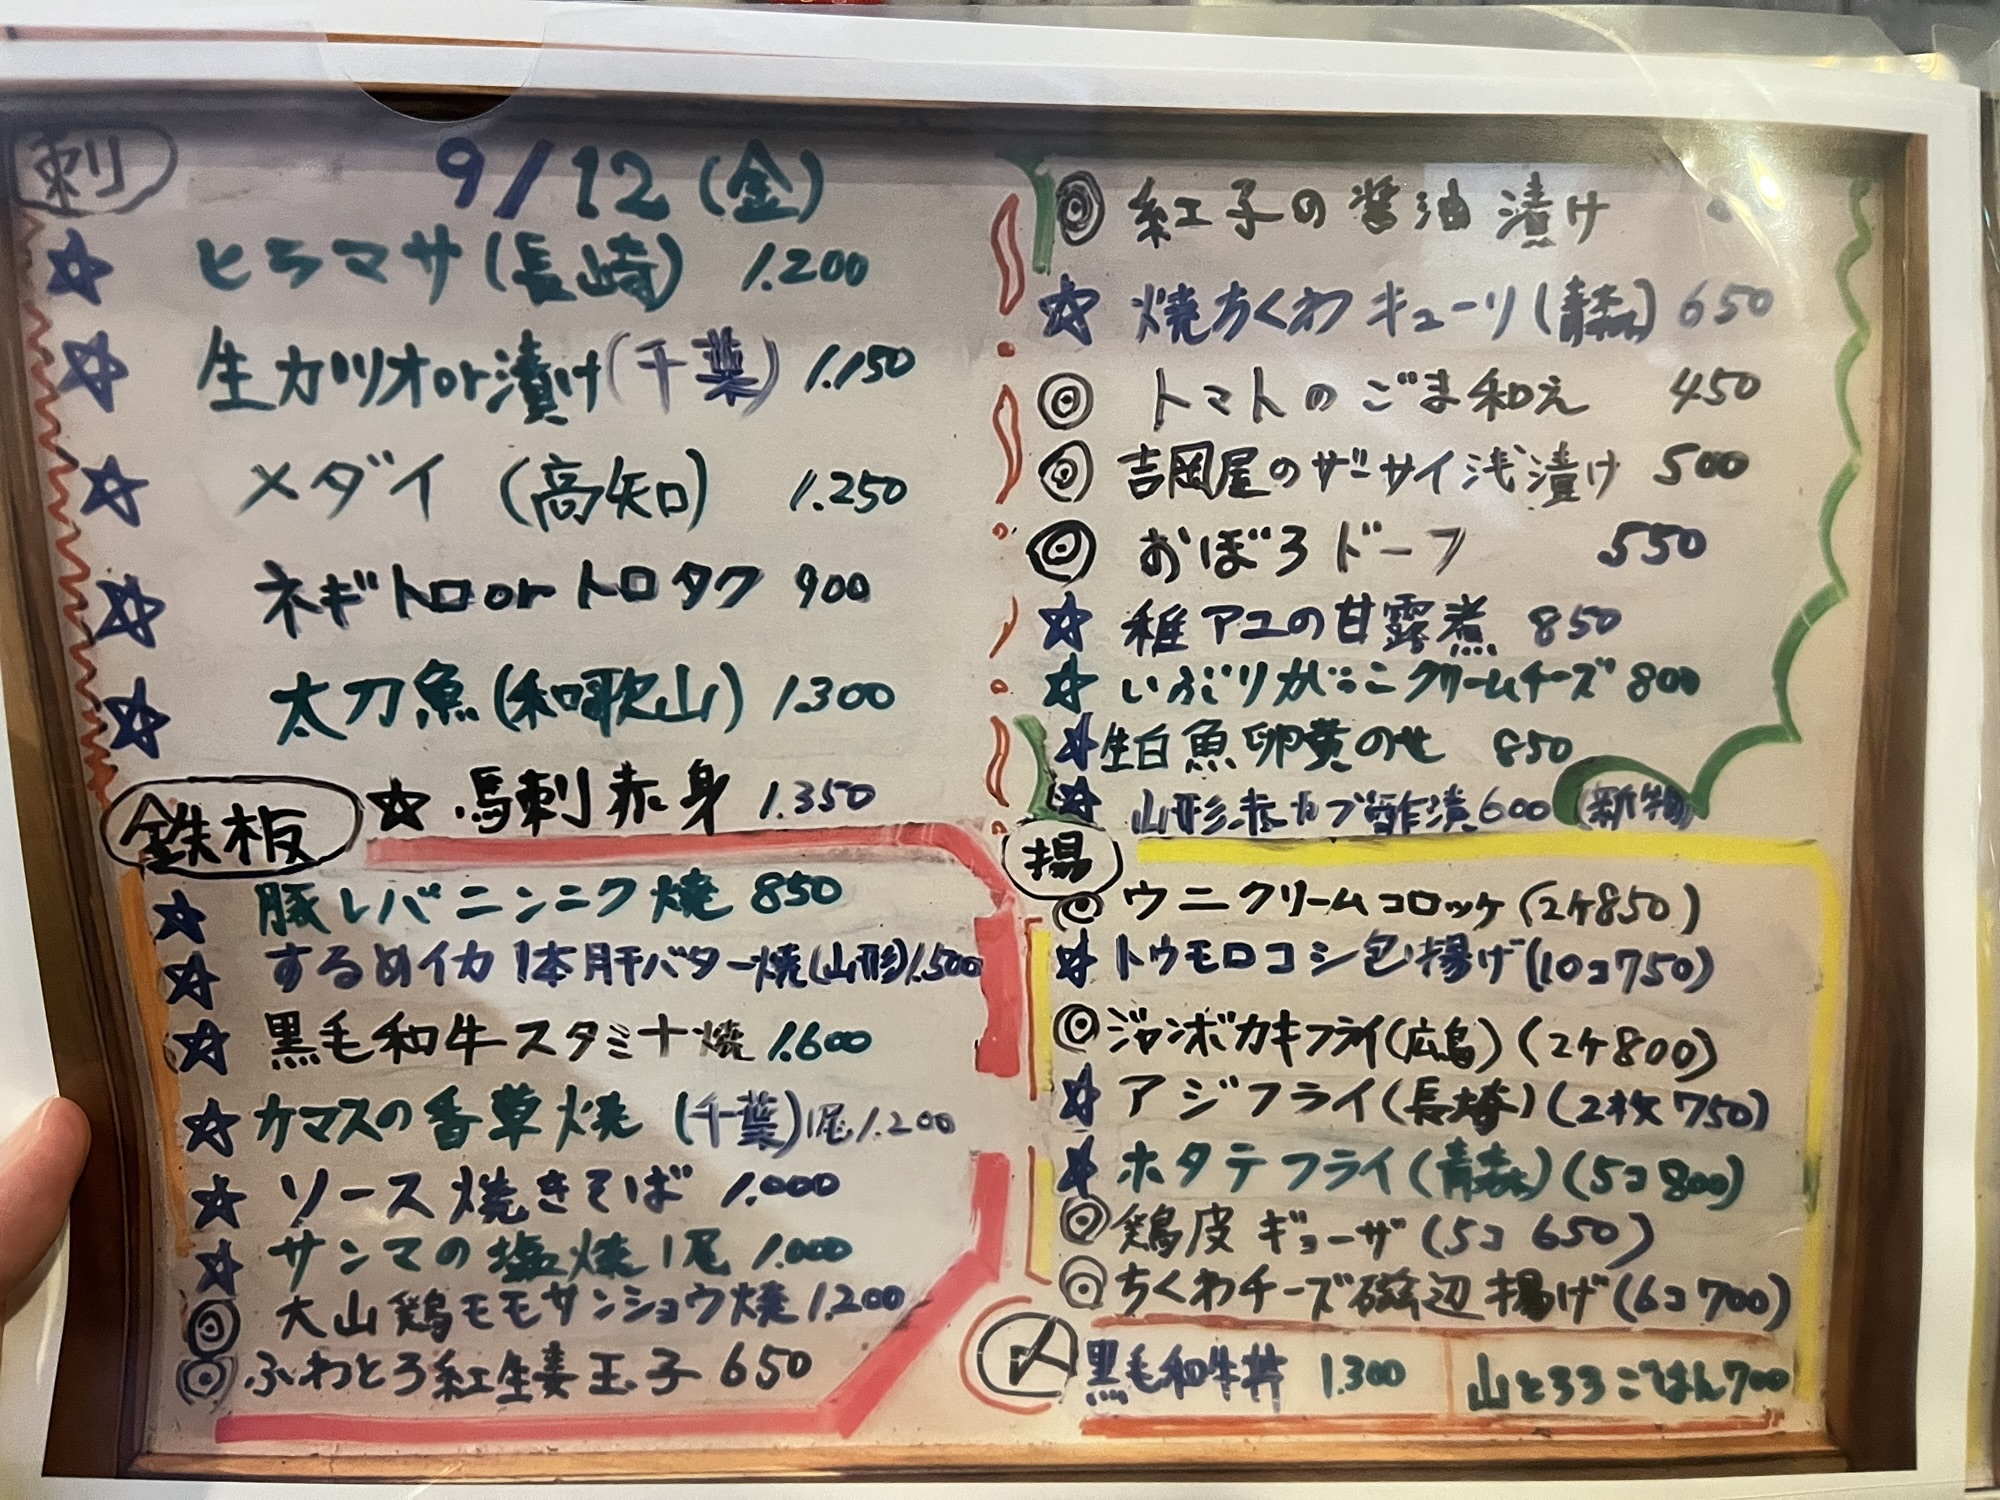 刺
9/12(金)
☆ ヒラマサ(長崎) 1.200
☆ 生カツオor漬け(千葉) 1.150
☆ メダイ(高知) 1.250
☆ ネギトロorトロタク 900
☆ 太刀魚(和歌山) 1.300
☆ 馬刺赤身 1.350
鉄板
☆ 豚レバニンニク焼 850
☆ するめイカ1本肝バター焼(山形)1.500
☆ 黒毛和牛スタミナ焼 1.600
☆ カマスの香草焼(千葉)1尾1.200
☆ ソース焼きそば 1.000
☆ サンマの塩焼1尾 1.000
◎ 大山鶏モモサンショウ焼1.200
◎ ふわとろ紅生姜玉子 650
◎ 紅子の醤油漬け
☆ 焼ちくわキューリ(青森) 650
◎ トマトのごま和え 450
◎ 吉岡屋のザーサイ浅漬け 500
◎ おぼろドーフ 550
☆ 稚アユの甘露煮 850
☆ いぶりがっこクリームチーズ 800
☆ 生白魚卵黄のせ 850
☆ 山形赤カブ酢漬600(新物)
揚
◎ ウニクリームコロッケ(2ケ850)
☆ トウモロコシ包揚げ(10コ750)
◎ ジャンボカキフライ(広島)(2ケ800)
☆ アジフライ(長崎)(2枚750)
☆ ホタテフライ(青森)(5コ800)
◎ 鶏皮ギョーザ(5コ650)
◎ ちくわチーズ磯辺揚げ(6コ700)
〆 黒毛和牛丼 1.300 山とろろごはん700